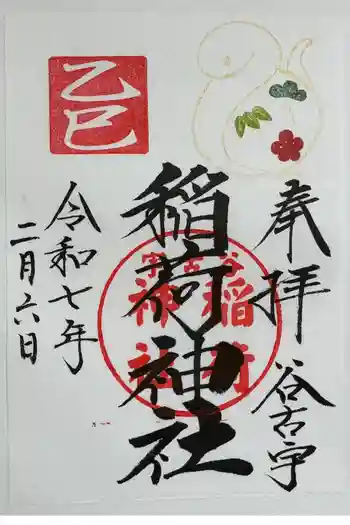 奉拝 谷古宇
稲荷神社
令和七年
二月六日
乙巳
谷古宇
稲荷
神社